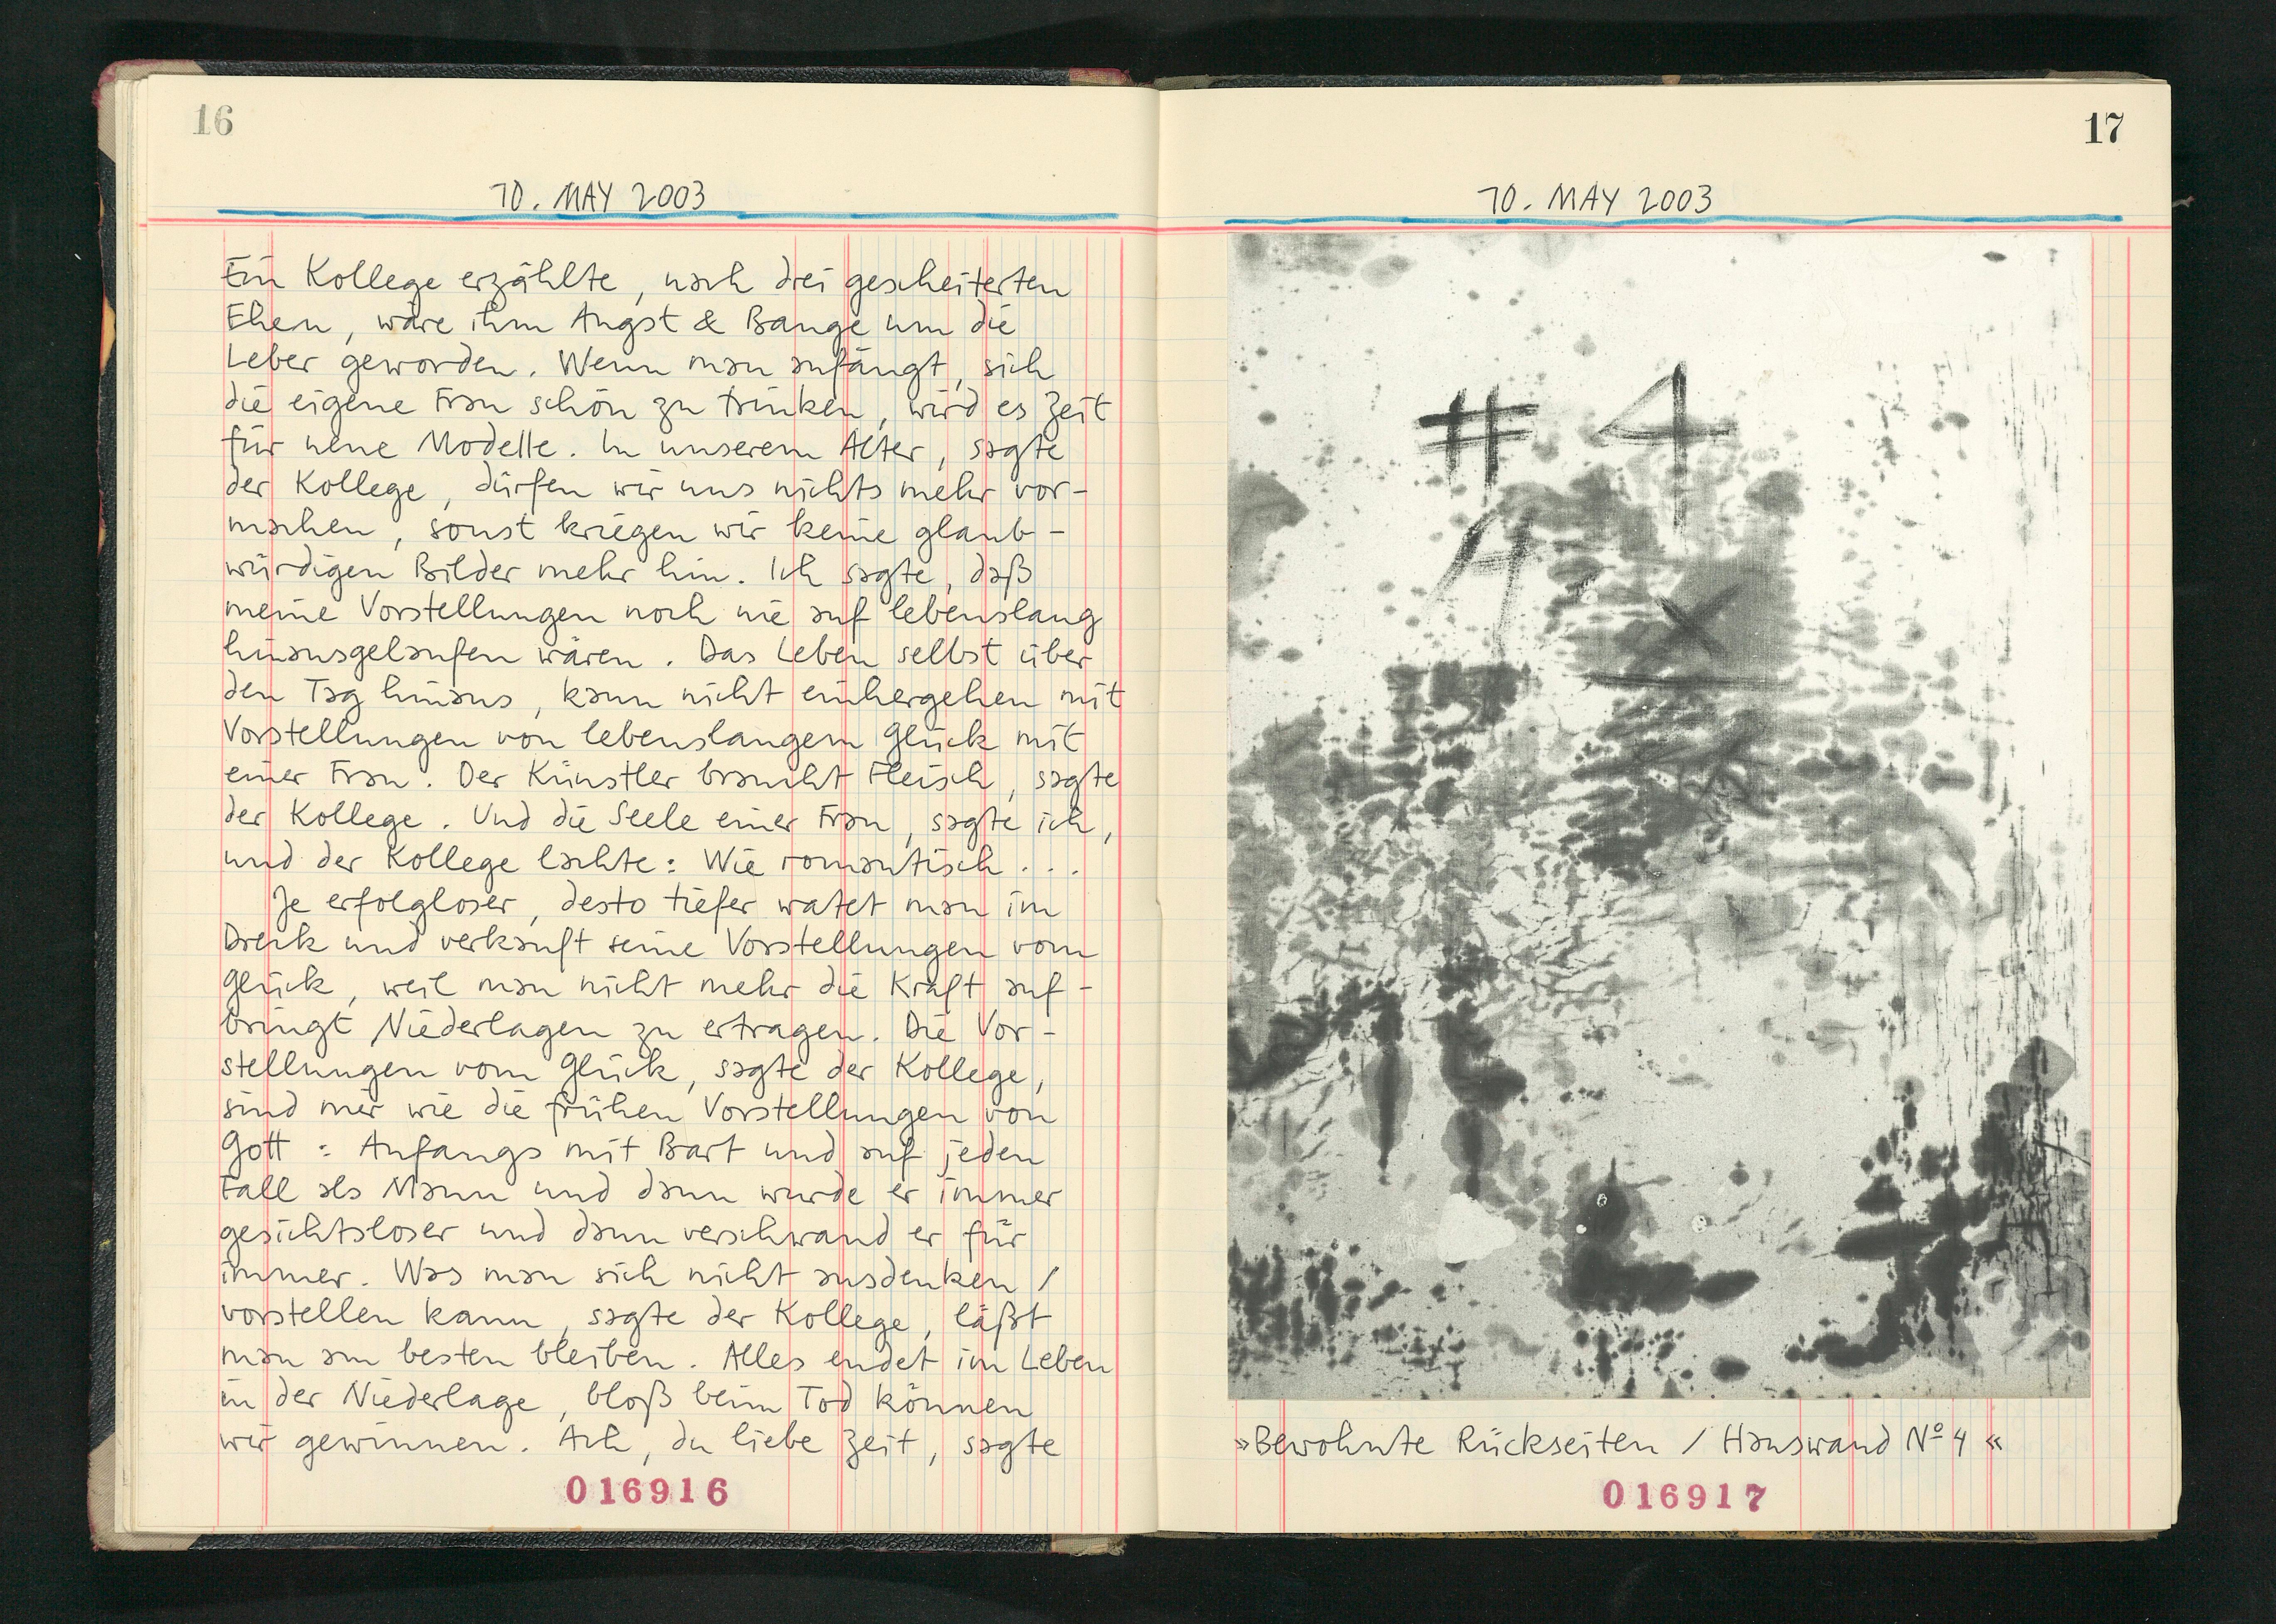 16
10. MAY 2003
Ein Kollege erzählte, nach drei gescheiterten
Ehen, wäre ihm Angst & Bange um die
Leber geworden. Wenn man anfängt, sich
die eigene Frau schön zu trinken, wird es Zeit
für neue Modelle. In unserem Alter, sagte
der Kollege, dürfen wir uns nichts mehr vor-
machen, sonst kriegen wir keine glaub-
würdigen Bilder mehr hin. Ich sagte, daß
meine Vorstellungen noch nie auf lebenslang
hinausgelaufen wären. Das Leben selbst über
den Tag hinaus, kann nicht einhergehen mit
Vorstellungen von lebenslangem Glück mit
einer Frau. Der Künstler braucht Fleisch, sagte
der Kollege. Und die Seele einer Frau, sagte ich,
und der Kollege lachte: Wie romantisch...
Je erfolgloser, desto tiefer watet man im
Dreck und verkauft seine Vorstellungen vom
Glück, weil man nicht mehr die Kraft auf-
bringt Niederlagen zu ertragen. Die Vor-
stellungen vom Glück, sagte der Kollege,
sind mir wie die frühen Vorstellungen von
Gott: Anfangs mit Bart und auf jeden
Fall als Mann und dann wurde er immer
gesichtsloser und dann verschwand er für
immer. Was man sich nicht ausdenken /
vorstellen kann, sagte der Kollege, läßt
man am besten bleiben. Alles endet im Leben
in der Niederlage, bloß beim Tod können
wir gewinnen. Ach, du liebe Zeit, sagte
016916
17
10. MAY 2003
# 4
4
»Bewohnte Rückseiten / Hauswand Nº 4«
016917